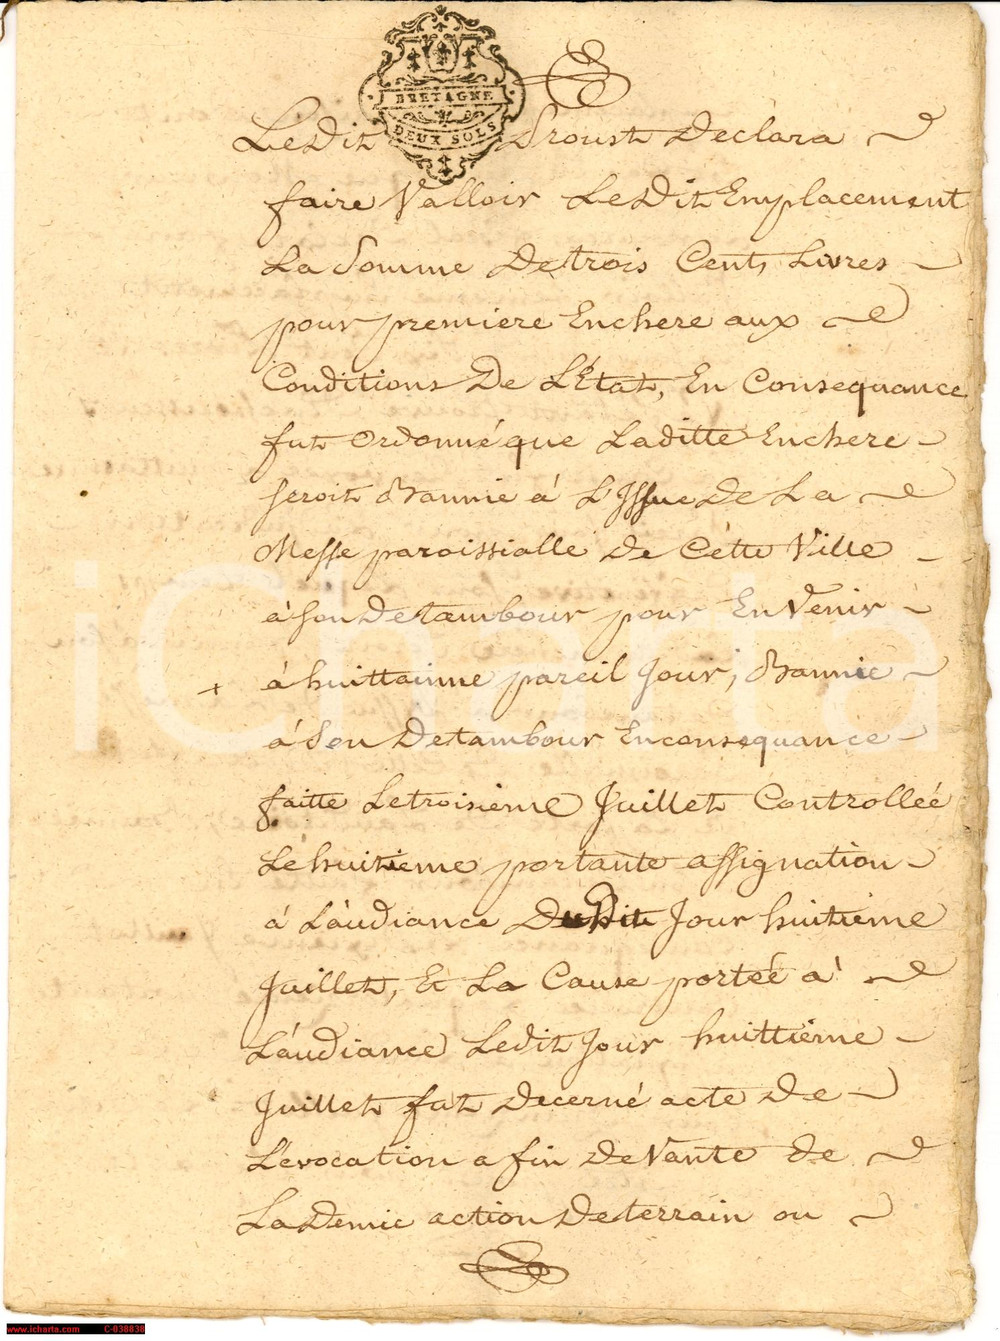 BRETAGNE
DEUX SOLS
Le Dit Proust Declara
faire Valloir Le Dit Emplacement
La Somme De trois Cents Livres
pour premiere Enchere aux
Conditions De L'État, En Consequance
fut Ordonné que Laditte Enchere
seroit Bannie á L'Issue De La
Messe paroissialle De Cette Ville
á Son De tambour pour En Venir
á huittainne pareil Jour; Bannie
á Son De tambour En consequance
faitte Le troisieme Juillet Controlleé
Le huitieme portante assignation
á L'audiance Du Dit Jour huitieme
Juillet, Et La Cause porteé á
L'audiance Ledit Jour huittieme
Juillet fut Decerné acte De
L'evocation a fin De Vante de
La Demie action De terrain ou
iCharta
www.icharta.com C-038838